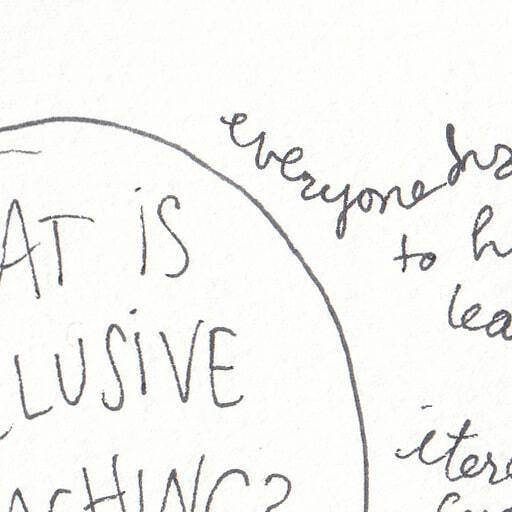 AT IS
LUSIVE
ACHING?
everyone has
to h
lea
itera